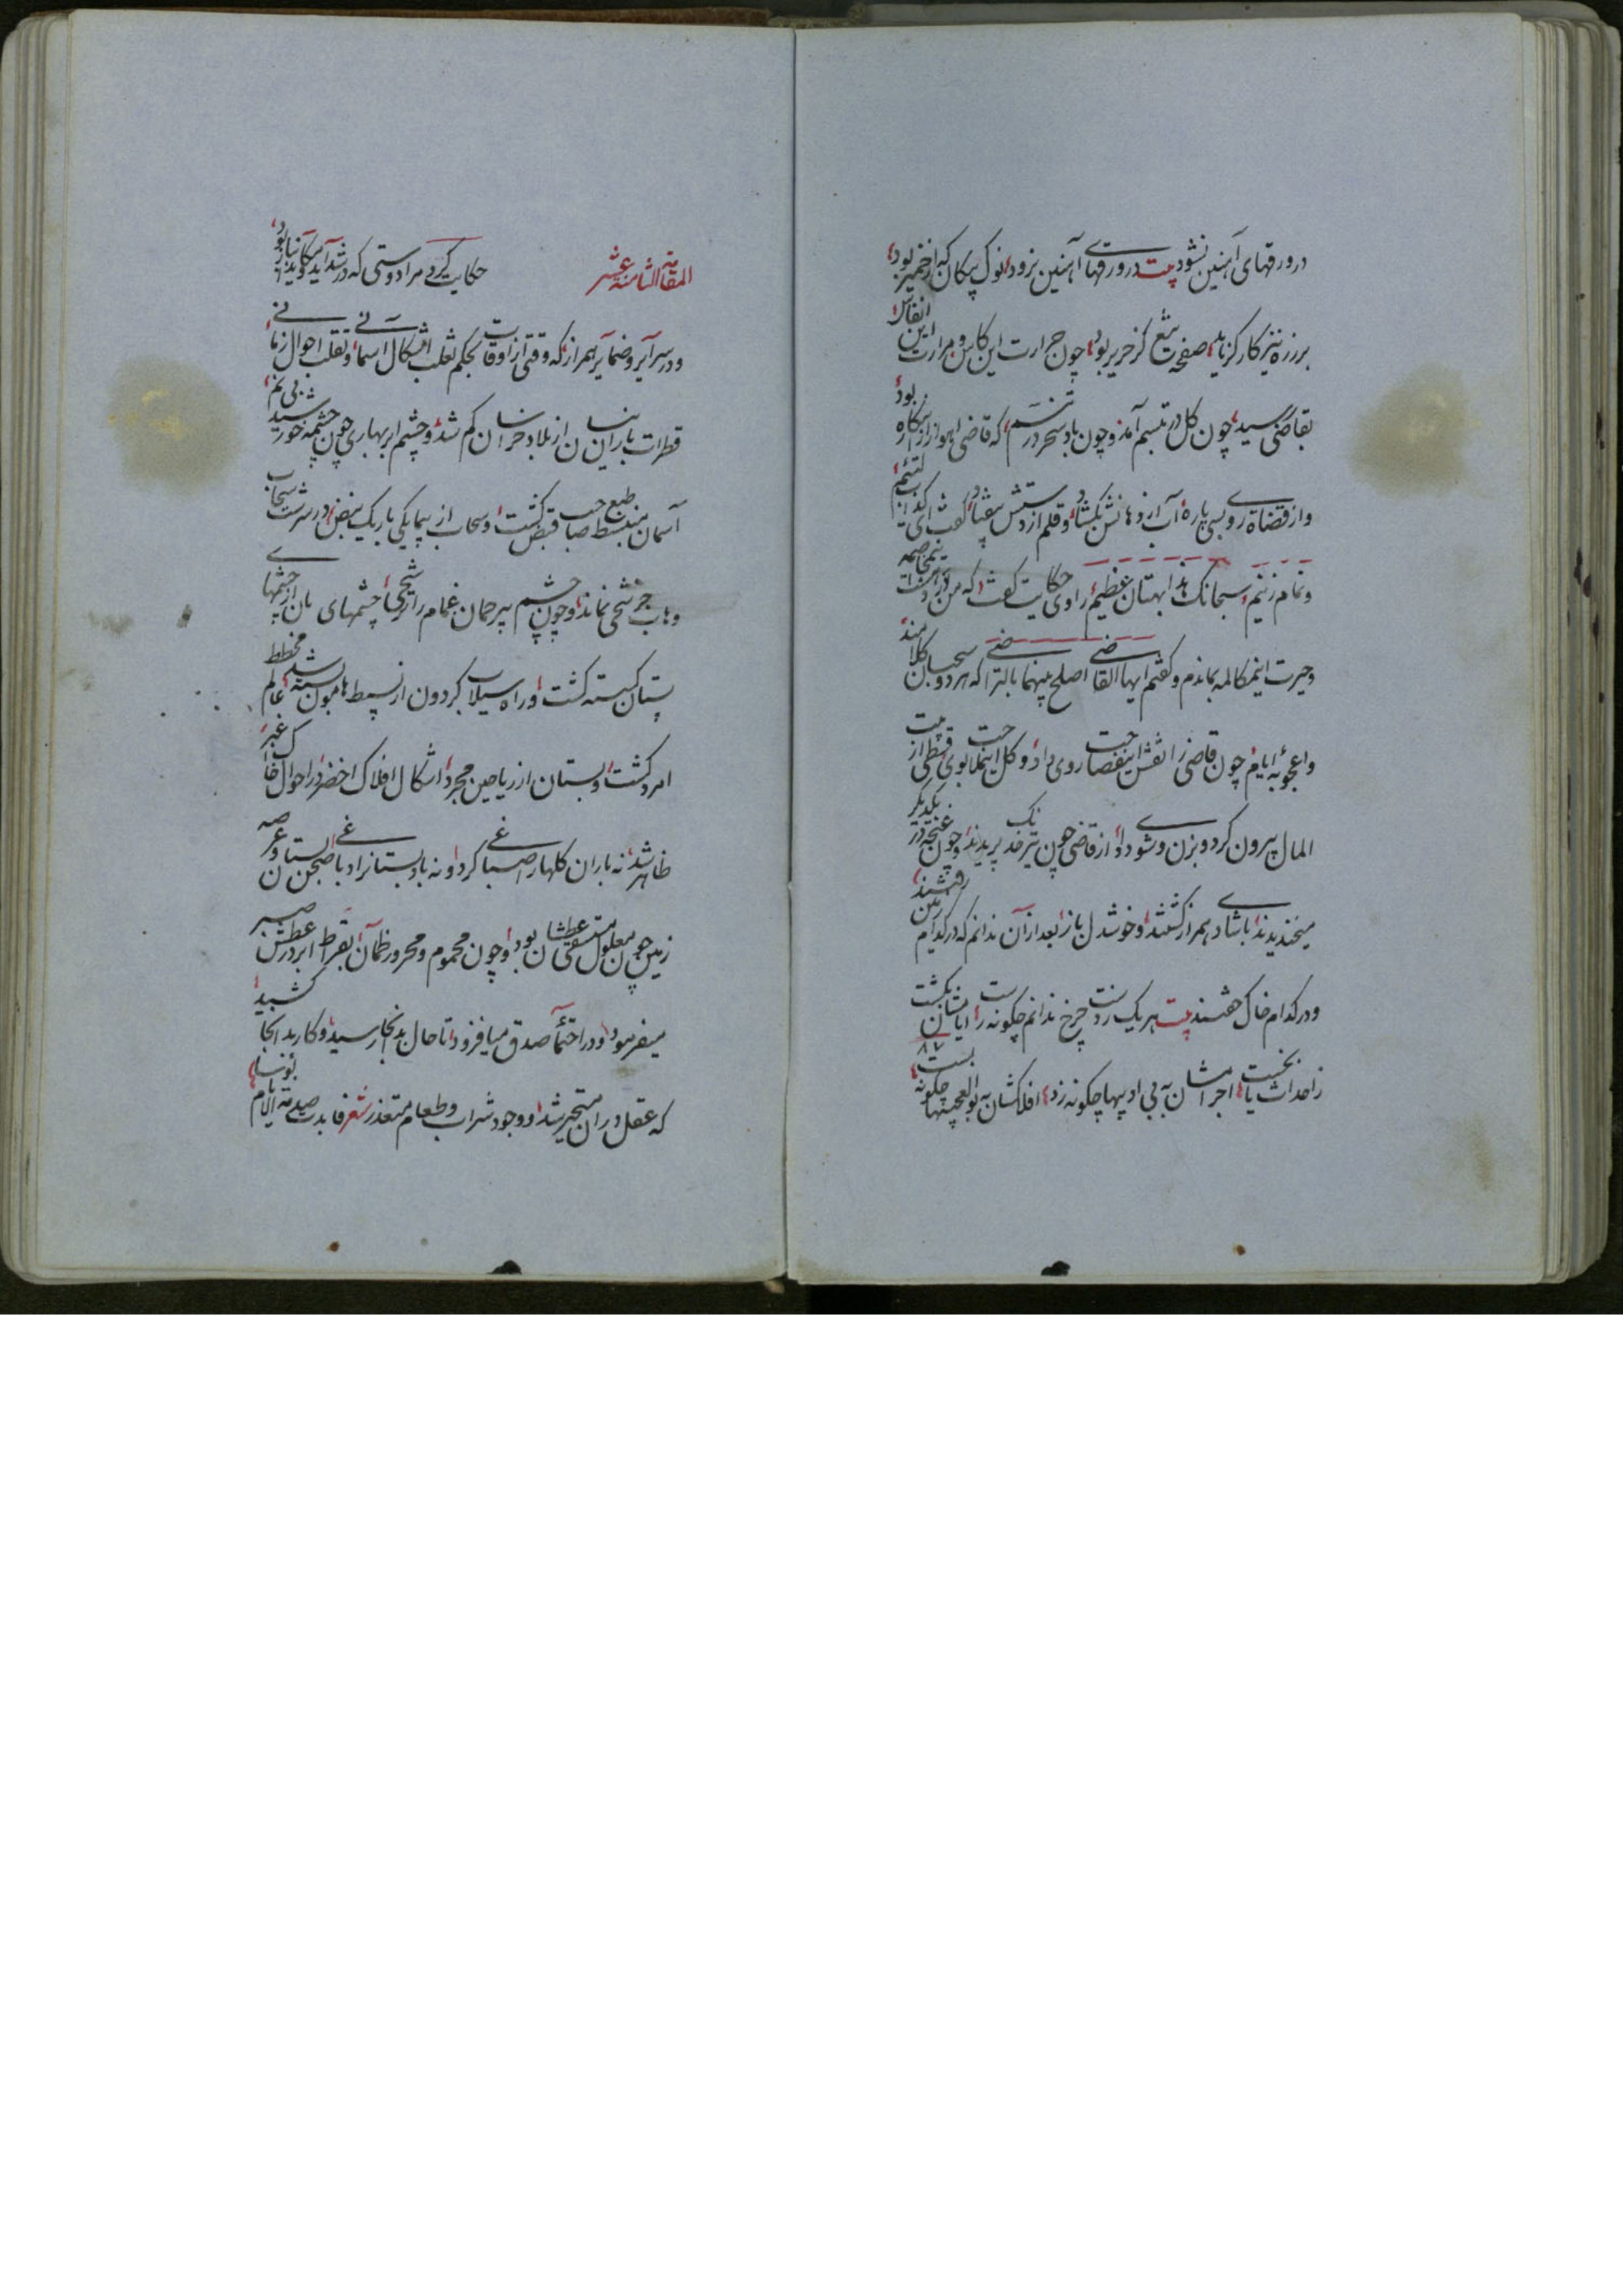 در ورقهای آهنین نشود بیت در ورقهای آهنین نرود نوک پیکان که از خمیر بود
بر زره تیز کارگر ناید صفحه تیغ کز حریر بود چون حرارت این کاس و مرارت این انفاس
بقاضی رسید چون گل در تبسم آمد و چون باد سحر در تنسم که قاضی اهواز ازین کاره بود
و از قضاة روسبی باره آب از دهانش بگشاد و قلم از دستش بیفتاد گفت ای کذاب لئیم
و نمام زنیم سبحانک هذا بهتان عظیم راوی حکایت گفت که من در
و حیرت اینمکالمه بماندم و گفتم ایها القاضی اصلح بینهما بالتراضی که هر دو سحبان کلامند
و اعجوبه ایام چون قاضی را نقش این فصاحت روی داد و گل این ملاحت بوی قسطی از بیت
المال بیرون کرد و بزن و شوی داد و از قاضی چون تیر خدنگ پریدند و چون غنچه در یکدیگر
میخندیدند با شادی همراز گشتند و خوشدل باز بعد از آن ندانم که در کدام زمین رفتند
و در کدام خاک خفتند بیت هر یک ز دست چرخ ندانم چگونه رست ایامشان بکشت
ز احداث یا بخست اجرامشان به بی ادبیها چگونه زد افلاکشان به بوالعجبیها چگونه بست
۸۷
المقامة الثامنة عشر حکایت کرد مرا دوستی که در شداید
و در سرایر و ضمایر همراز که وقتی از اوقات بحکم تغلب اشکال آسمانی و تقلب احوال زمانی
قطرات باران نیسان از بلاد خراسان کم شد و چشم ابر بهاری چون چشمه خورشید بی نم
آسمان منبسط صاحب قبض گشت و سحاب از بیمایگی باریک نبض در سرشت سحاب
وهاب جز شحی نماند و چون چشم بیرحمان غمام را ترشحی چشمهای باران از چشمهای
بستان گسسته گشت و راه سیلاب گردون از بسیط هامون بسته شد عالم مخطط
امرد گشت و بستان از ریاحین مجرد اشکال افلاک اخضر در احوال خاک اغبر
ظاهر شد نه باران گلها را صباغی کرد و نه باد بستانرا دباغی صحن بستان و عرصه
زمین چون معلول مستسقی عطشان بود و چون محموم و محرور ظمآن بقرط ابر در عطش صبر
میفرمود و در احتما صدق میافزود تا حال بدنجا رسید و کار بدانجا کشید
که عقل در آن متحیر شد و وجود شراب و طعام متعذر شعر فابدت صدمة الایام بؤسا